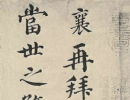 襄再拜
當世之